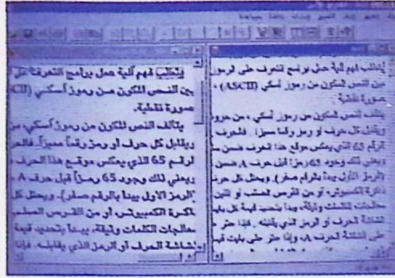 يتطلب فهم آلية عمل برامج التعرف على الرموز
بين النص المكون من رموز أسكي (ASCII) ،
صورة نقطية .
يتألف النص المكون من رموز أسكي ، من حروف
ويقابل كل حرف أو رمز رقماً مميزاً . فالحرف
الرقم 65 الذي يعكس موقع هذا الحرف ضمن
ويعني ذلك وجود 65 رمزاً قبل حرف A ، ضمن
(الرمز الأول يبدأ بالرقم صفر) . ويحتل كل حرف
ذاكرة الكمبيوتر ، أو من القرص الصلب أو اللين
معالجات الكلمات وثيقة ، يبدأ بتحديد قيمة كل بايت
الشاشة الحرف أو الرمز الذي يقابله . فإذا عثر
على الشاشة الحرف A ، وإذا عثر على بايت قيمته
يتطلب فهم آلية عمل برامج التعرف على
بين النص المكون من رموز أسكي
صورة نقطية.
يتألف النص المكون من رموز أسكي، من
ويقابل كل حرف أو رمز رقماً مميزاً. فالحرف
الرقم 65 الذي يعكس موقع هذا الحرف
ويعني ذلك وجود 65 رمزاً قبل حرف A
(الرمز الأول يبدأ بالرقم صفر). ويحتل كل
ذاكرة الكمبيوتر، أو من القرص الصلب
معالجات الكلمات وثيقة، يبدأ بتحديد قيمة
الشاشة الحرف أو الرمز الذي يقابله. فإذا